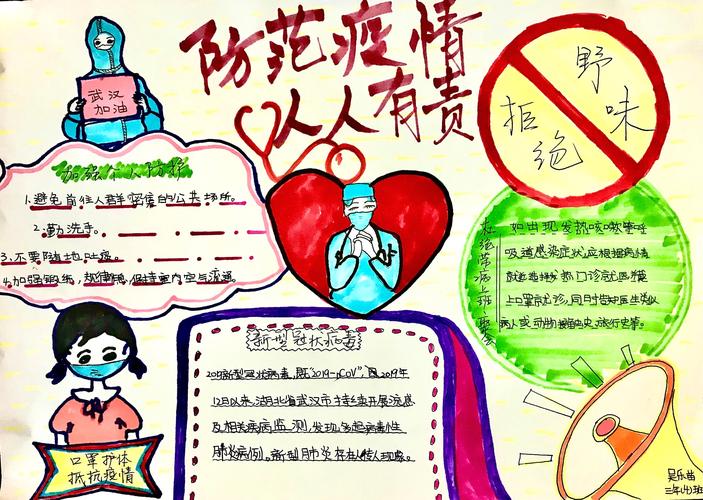 防范疫情
人人有责
武汉
加油
加强个人防护
1.避免前往人群密集的公共场所。
2.勤洗手。
3.不要随地吐痰。
4.加强锻炼，规律作息，保持室内空气流通。
拒绝
野味
杜绝带病上班、聚会
如出现发热咳嗽等呼
吸道感染症状，应根据病情
就近选择发热门诊就医，戴
上口罩就诊，同时告知医生类似
病人或动物接触史、旅行史等。
新型冠状病毒
12月以来，湖北省武汉市持续开展流感
及相关疾病监测，发现多起病毒性
肺炎病例。新型肺炎存在人传人现象。
口罩护体
抵抗疫情
三年(4)班